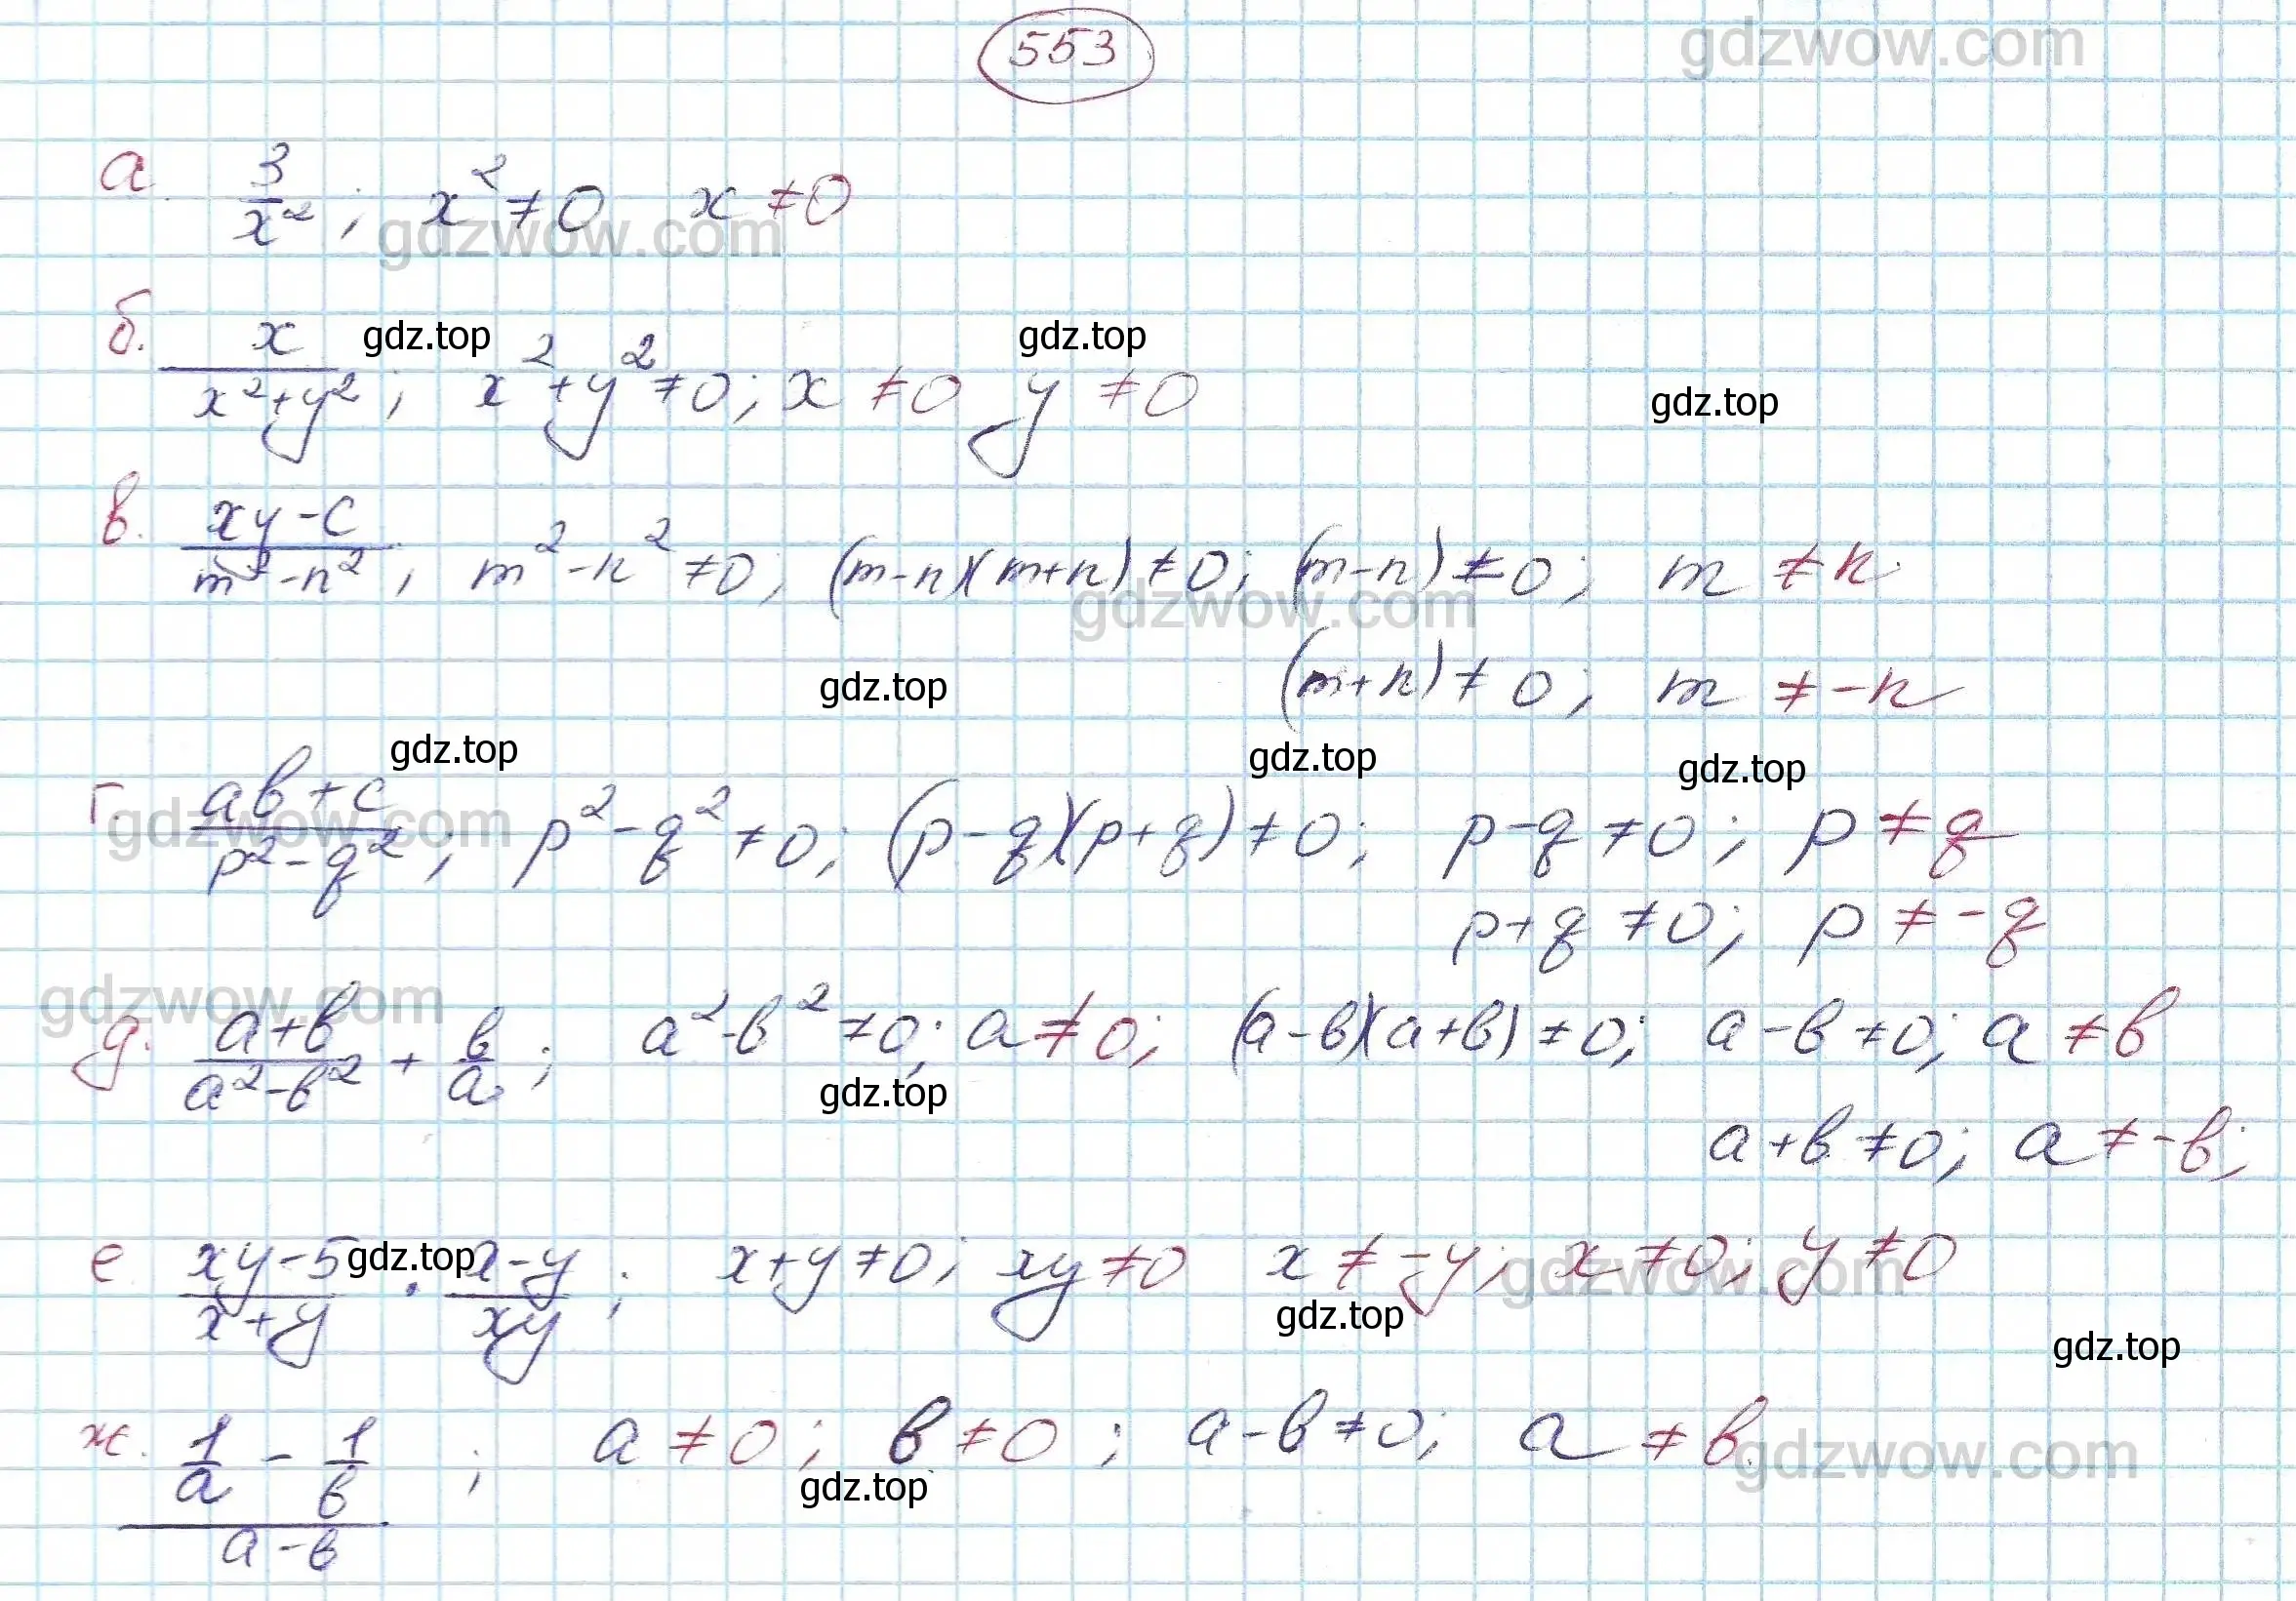 553
gdzwow.com
а. 3/x²; x² ≠ 0 x ≠ 0
gdzwow.com
б. x/(x²+y²); x²+y² ≠ 0; x ≠ 0 y ≠ 0
gdz.top gdz.top gdz.top
в. (xy-c)/(m²-n²); m²-n² ≠ 0; (m-n)(m+n) ≠ 0; (m-n) ≠ 0; m ≠ n.
gdzwow.com
(m+n) ≠ 0; m ≠ -n
gdz.top
gdz.top gdz.top gdz.top
г. (ab+c)/(p²-q²); p²-q² ≠ 0; (p-q)(p+q) ≠ 0; p-q ≠ 0; p ≠ q
gdzwow.com
p+q ≠ 0; p ≠ -q
gdzwow.com
д. (a+b)/(a²-b²) + b/a; a²-b² ≠ 0; a ≠ 0; (a-b)(a+b) ≠ 0; a-b ≠ 0; a ≠ b
gdz.top
a+b ≠ 0; a ≠ -b;
е. (xy-5)/(x+y) · (x-y)/(xy); x+y ≠ 0; xy ≠ 0 x ≠ -y; x ≠ 0; y ≠ 0
gdz.top gdzwow.com
gdz.top gdz.top
ж. (1/a - 1/b)/(a-b); a ≠ 0; b ≠ 0; a-b ≠ 0; a ≠ b.
gdz.top gdzwow.com